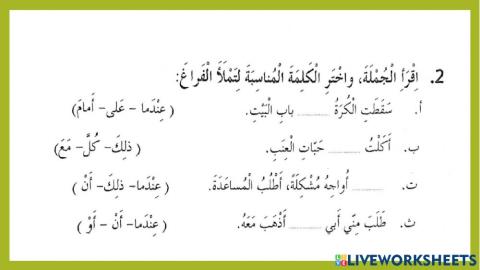 2. اِقْرَأِ الْجُمْلَةَ، واخْتَرِ الْكَلِمَةَ الْمُناسِبَةَ لِتَمْلَأَ الْفَراغَ:
أ. سَقَطَتِ الْكُرَةُ ........ بابِ الْبَيْتِ. ( عِنْدَما - عَلى- أَمامَ)
ب. أَكَلْتُ ........ حَبّاتِ الْعِنَبِ. (ذلِكَ- كُلَّ- مَعَ)
ت. ........ أُواجِهُ مُشْكِلَةً، أَطْلُبُ الْمُساعَدَةَ. ( عِنْدَما- ذلِكَ- أَنْ )
ث. طَلَبَ مِنّي أَبي ........ أَذْهَبَ مَعَهُ. (عِنْدَما- أَنْ - أَوْ )
LIVEWORKSHEETS